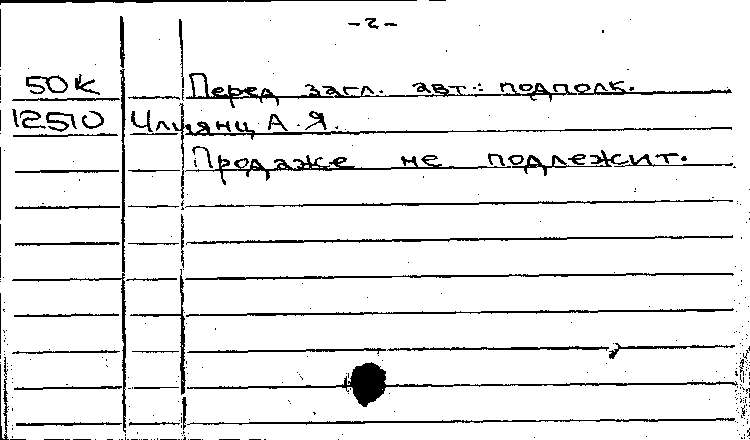 -2-
50К Перед загл. авт.: подполк.
12510 Члиянц А.Я.
Продаже не подлежит.